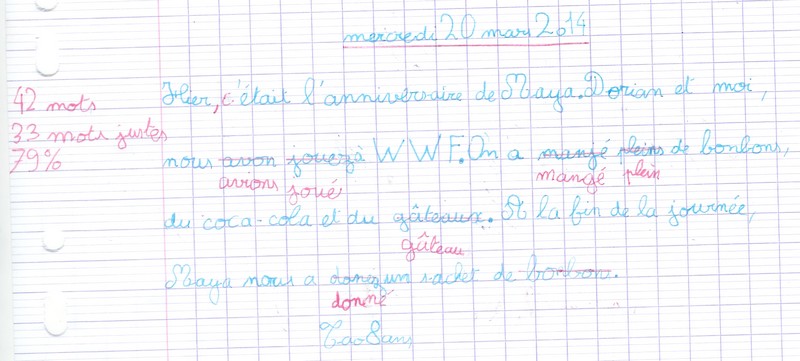 mercredi 20 mars 2014
42 mots
33 mots justes
79%
Hier, c'était l'anniversaire de Maya. Dorian et moi,
nous avon jouer à WWF. On a manjé pleins de bonbons,
avions joué mangé plein
du coca-cola et du gâteaux. A la fin de la journée,
gâteau
Maya nous a donez un sachet de bonbon.
donné
Tao 8 ans